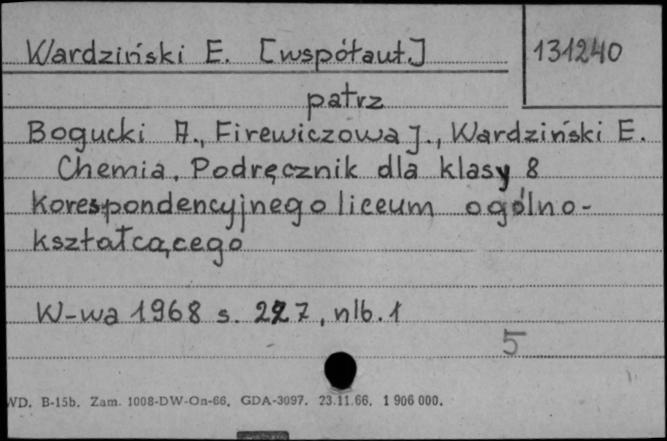 Wardziński E. [współaut.] 131240
patrz
Bogucki A., Firewiczowa J., Wardziński E.
Chemia. Podręcznik dla klasy 8
korespondencyjnego liceum ogólno-
kształcącego
W-wa 1968 s. 227, nlb. 1
5
WD. B-15b. Zam. 1008-DW-On-66. GDA-3097. 23.11.66. 1 906 000.